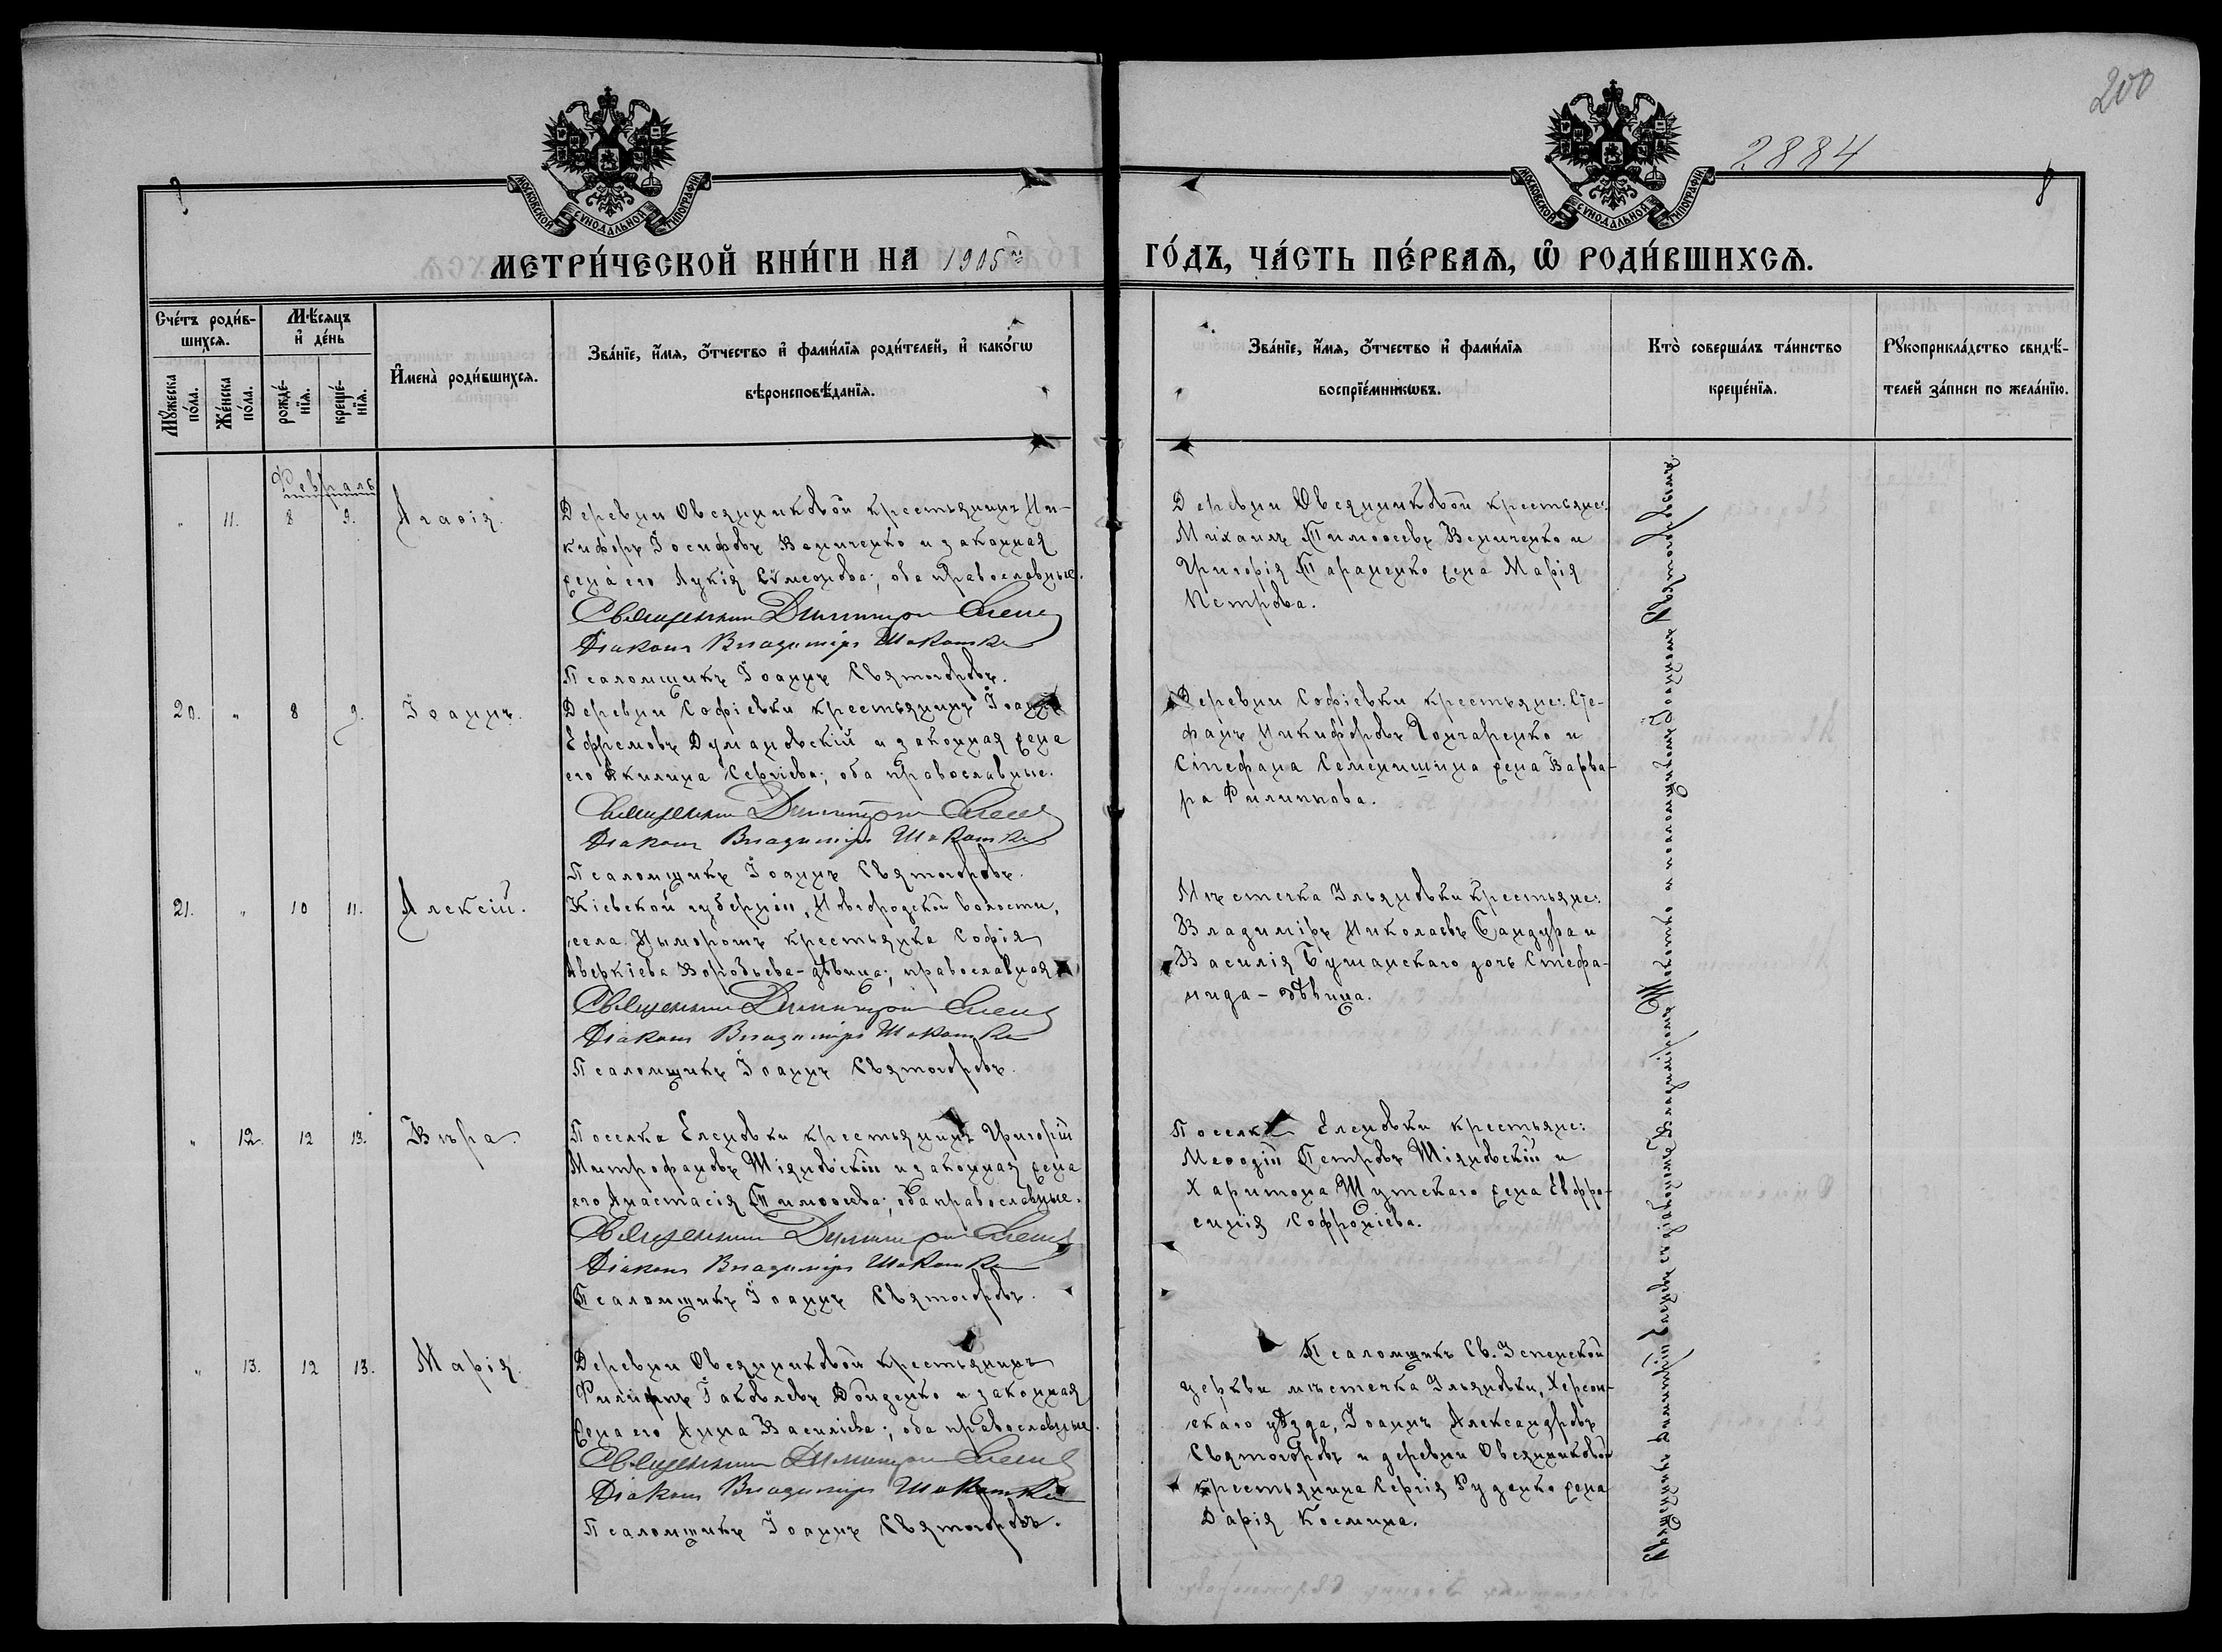 200
2884
МОСКОВСКОЙ СУНОДАЛЬНОЙ ТИПОГРАФІИ
МОСКОВСКОЙ СУНОДАЛЬНОЙ ТИПОГРАФІИ
МЕТРИ́ЧЕСКОЙ КНИ́ГИ НА 1905й ГО́ДЪ, ЧА́СТЬ ПЕ́РВАѦ, Ѡ҆ РОДИ́ВШИХСѦ.
Сче́тъ роди́в-
шихсѧ.
Мꙋ́жеска по́ла.
Же́нска по́ла.
Мѣ́сяцъ
и҆ де́нь
рожде́-
нїѧ.
креще́-
нїѧ.
И҆мена̀ роди́вшихсѧ.
Зва́нїе, и҆́мѧ, ѻ҆́тчество и҆ фами́лїѧ роди́телей, и҆ како́гѡ
вѣроисповѣ́данїѧ.
Зва́нїе, и҆́мѧ, ѻ҆́тчество и҆ фами́лїѧ
воспрїе́мникѡвъ.
Кто̀ соверша́лъ та́инство
креще́нїѧ.
Рꙋкоприкла́дство свидѣ́-
телей за́писи по жела́нїю.
Февраль
" 11. 8 9. Агаѳія.
Деревни Овсянниковой крестьянинъ Ни-
кифоръ Іосифовъ Величенко и законная
жена его Лукія Сѵмеонова; оба православные.
Священникъ Димитрій
Діаконъ Владиміръ Шокотко
Псаломщикъ Іоаннъ Святогоровъ.
Деревни Овсянниковой крестьяне:
Михаилъ Тимоѳеевъ Величенко и
Григорія Тараненко жена Марія
Петрова.
20. " 8 9. Іоаннъ.
Деревни Софіевки крестьянинъ Іоаннъ
Ефремовъ Думановскій и законная жена
его Акилина Сергіева; оба православные.
Священникъ Димитрій
Діаконъ Владиміръ Шокотко
Псаломщикъ Іоаннъ Святогоровъ.
Деревни Софіевки крестьяне: Сте-
фанъ Никифоровъ Гончаренко и
Стефана Семенишина жена Варва-
ра Филиппова.
21. " 10 11. Алексій.
Кіевской губерніи, Новгородской волости,
села крестьянка Софія
Аверкіева Воробьева-дѣвица; православная
Священникъ Димитрій
Діаконъ Владиміръ Шокотко
Псаломщикъ Іоаннъ Святогоровъ.
Мѣстечка Ульяновки крестьяне:
Владиміръ Николаевъ Бандура и
Василія Бушанскаго дочь Стефа-
нида - дѣвица.
" 12. 12 13. Вѣра.
Поселка Еленовки крестьянинъ Григорій
Митрофановъ Шіяновскій и законная жена
его Анастасія Тимоѳеева; оба православные.
Священникъ Димитрій
Діаконъ Владиміръ Шокотко
Псаломщикъ Іоаннъ Святогоровъ.
Поселка Еленовки крестьяне:
Меѳодій Петровъ Шіяновскій и
Харитона Шутскаго жена Евфро-
синія Софроніева.
" 13. 12 13. Марія.
Деревни Овсянниковой крестьянинъ
Филиппъ Іаковлевъ Доценко и законная
жена его Анна Василіева; оба православные.
Священникъ Димитрій
Діаконъ Владиміръ Шокотко
Псаломщикъ Іоаннъ Святогоровъ.
Псаломщикъ Св. Успенской
церкви мѣстечка Ульяновки, Херсон-
скаго уѣзда, Іоаннъ Александровъ
Святогоровъ и деревни Овсянниковой
крестьянина Сергія Руденко жена
Дарія Космина.
Священникъ Димитрій съ діакономъ Владиміромъ Шокотко и псаломщикомъ Іоанномъ Святогоровымъ.